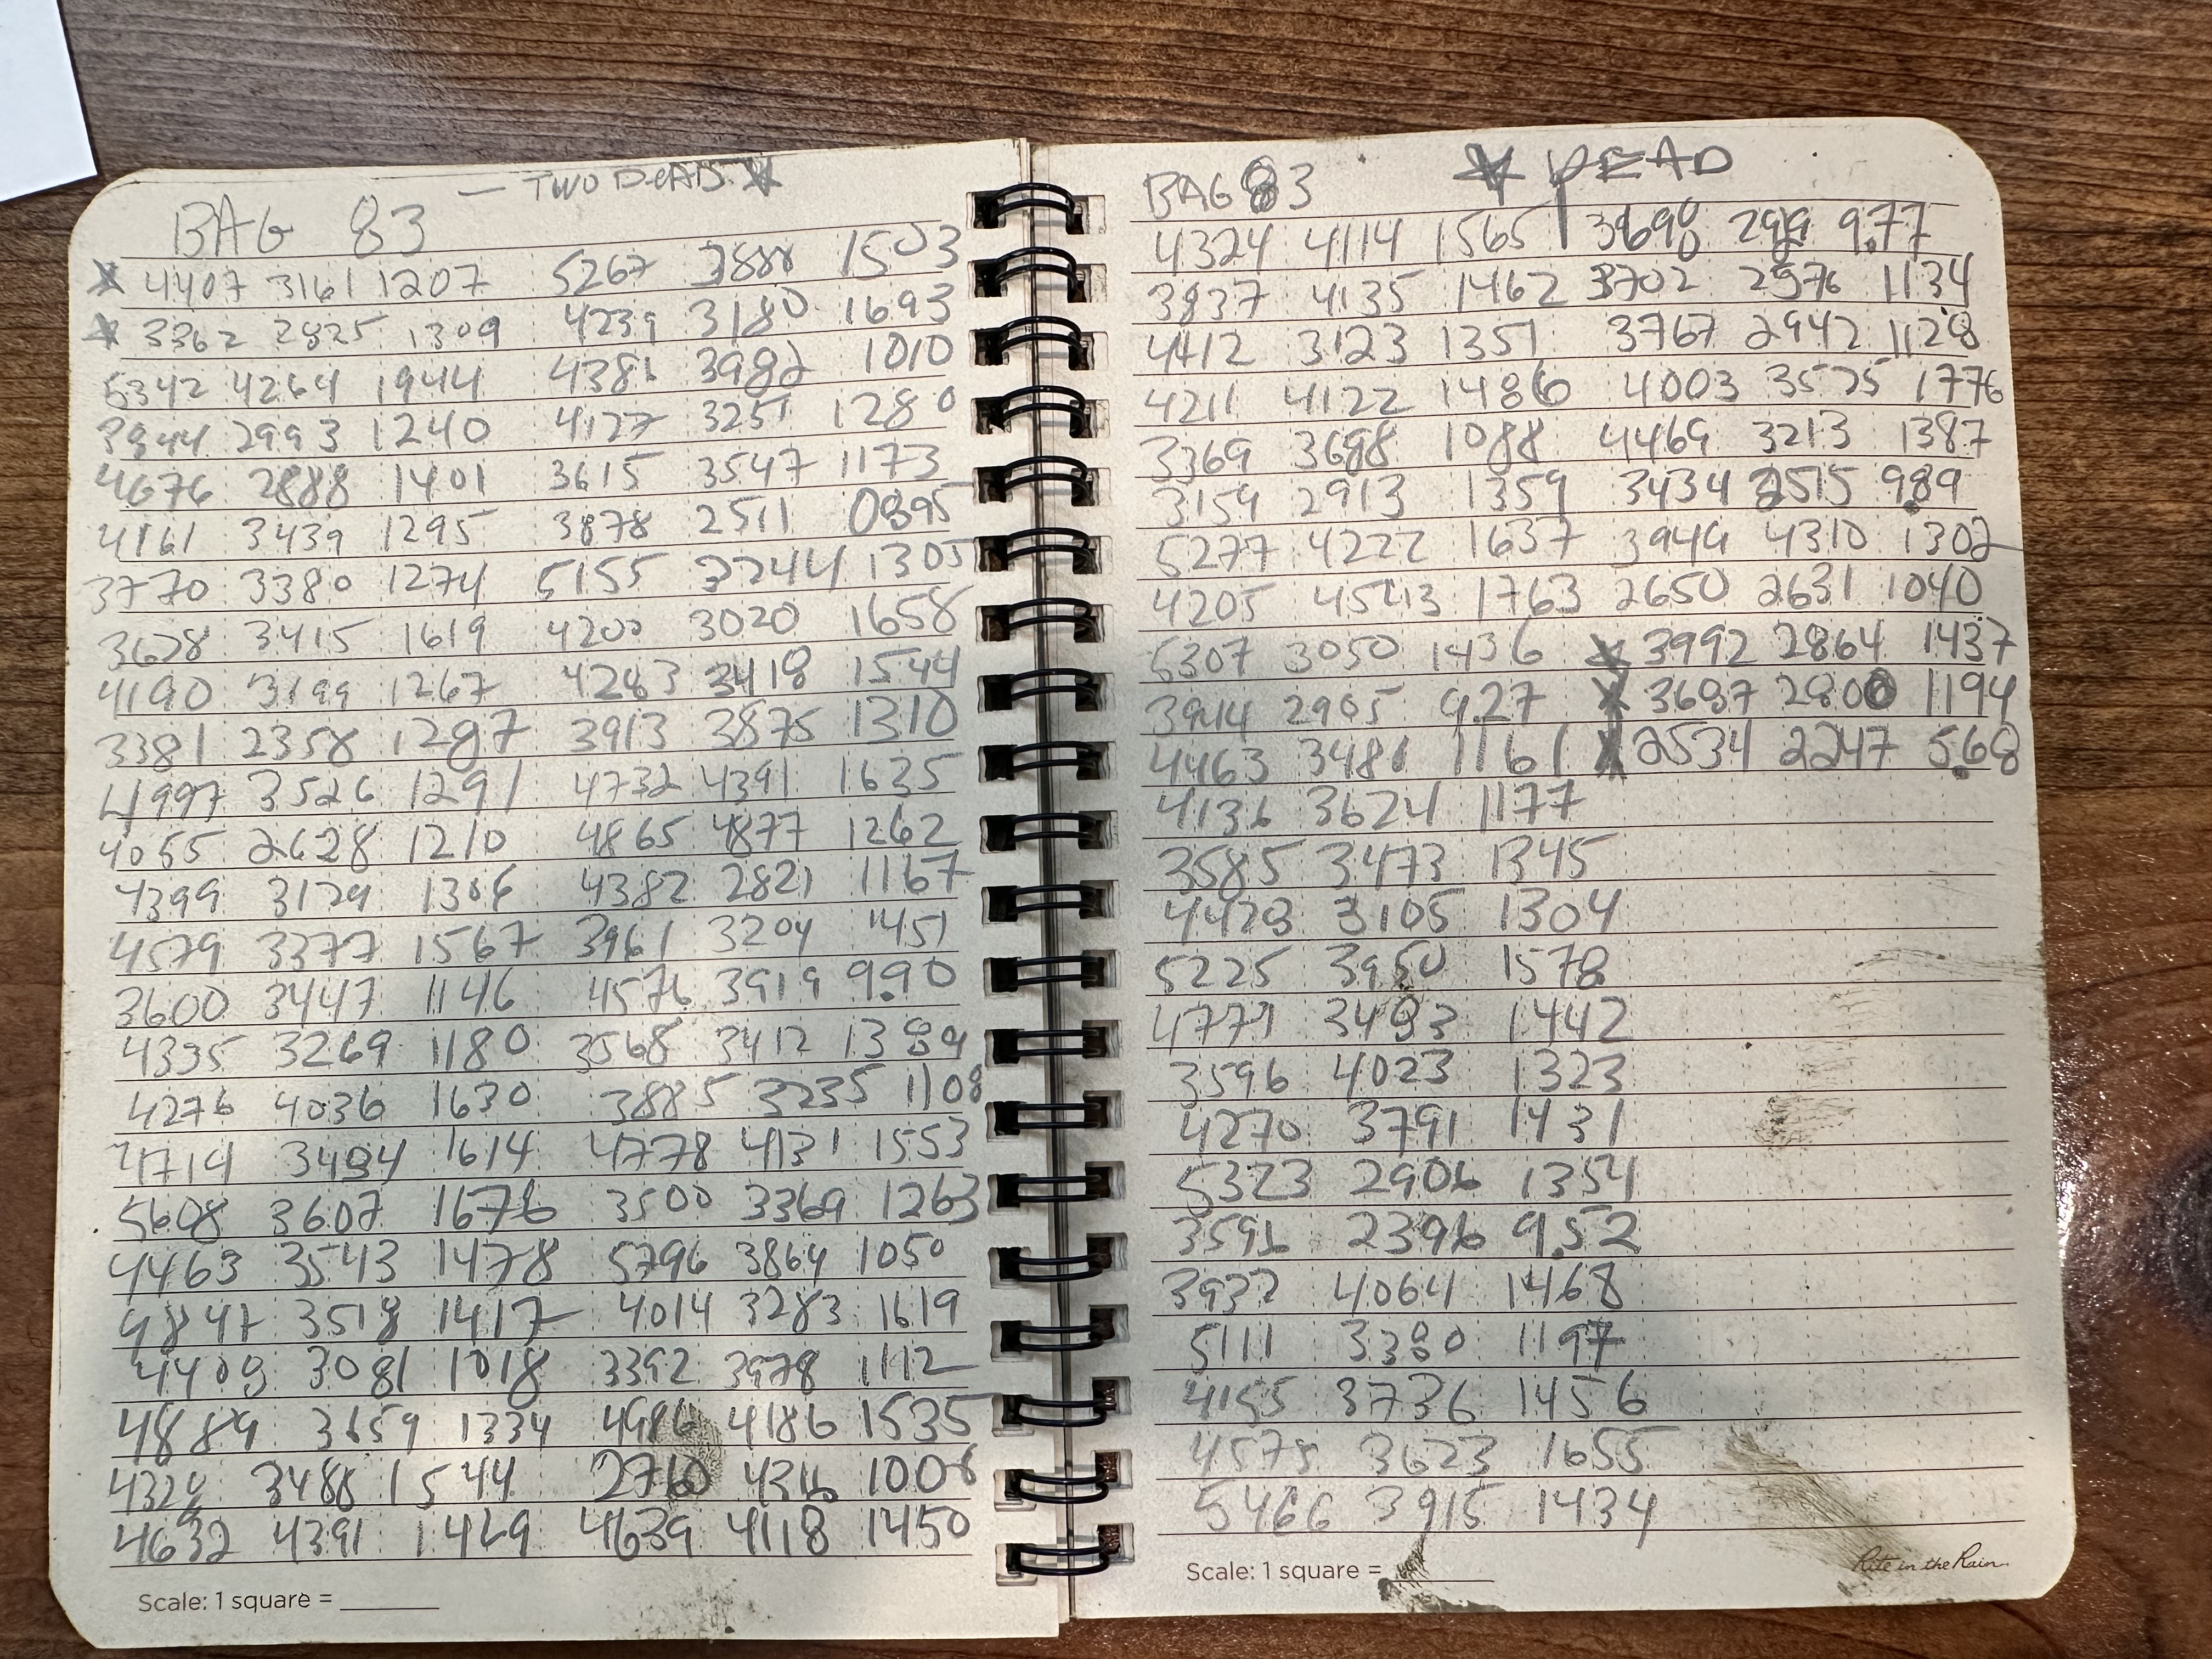 BAG 83 — TWO DEADS ★
★ 4407 3161 1207 5267 3888 1503
★ 3362 2825 1309 4239 3180 1693
5342 4264 1944 4381 3980 1010
3844 2993 1240 4127 3251 1280
4676 2888 1401 3615 3547 1173
4161 3439 1295 3878 2511 0895
3770 3380 1274 5155 3244 1305
3628 3415 1619 4200 3020 1658
4190 3199 1267 4263 3418 1544
3381 2358 1297 3913 3875 1310
4997 3526 1291 4732 4391 1625
4055 2628 1210 4865 4877 1262
4399 3129 1366 4382 2821 1167
4579 3377 1567 3961 3204 1451
3600 3447 1146 4576 3919 990
4335 3269 1180 3568 3412 1389
4276 4036 1630 3885 3235 1108
4714 3494 1614 4778 4131 1553
5608 3607 1676 3500 3369 1263
4463 3543 1478 5796 3864 1050
4847 3518 1417 4014 3283 1619
4409 3081 1018 3352 3978 1112
4884 3159 1334 4486 4186 1535
4324 3488 1544 2710 4346 1006
4632 4391 1449 4639 4118 1450
Scale: 1 square =
BAG 83 ★ DEAD
4324 4114 1565 3690 2949 977
3837 4135 1462 3702 2576 1134
4412 3123 1351 3767 2942 1128
4211 4122 1486 4003 3525 1776
3369 3698 1088 4469 3213 1387
3154 2913 1359 3434 2515 989
5277 4222 1637 3944 4310 1302
4205 4543 1763 2650 2631 1040
5307 3050 1436 ★ 3992 2864 1437
3944 2965 927 ★ 3697 2800 1194
4463 3481 1161 ★ 2534 2247 568
4136 3624 1177
3585 3473 1345
4428 3105 1304
5225 3950 1578
4771 3493 1442
3596 4023 1323
4270 3791 1431
5323 2906 1354
3591 2396 952
3932 4064 1468
5111 3380 1197
4145 3736 1456
4575 3623 1655
5466 3915 1434
Scale: 1 square =
Rite in the Rain